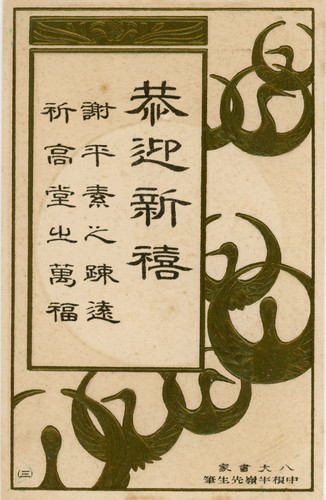 恭迎新禧
謝平素之疎遠
祈高堂之萬福
八大書家
中根半嶺先生筆
(三)